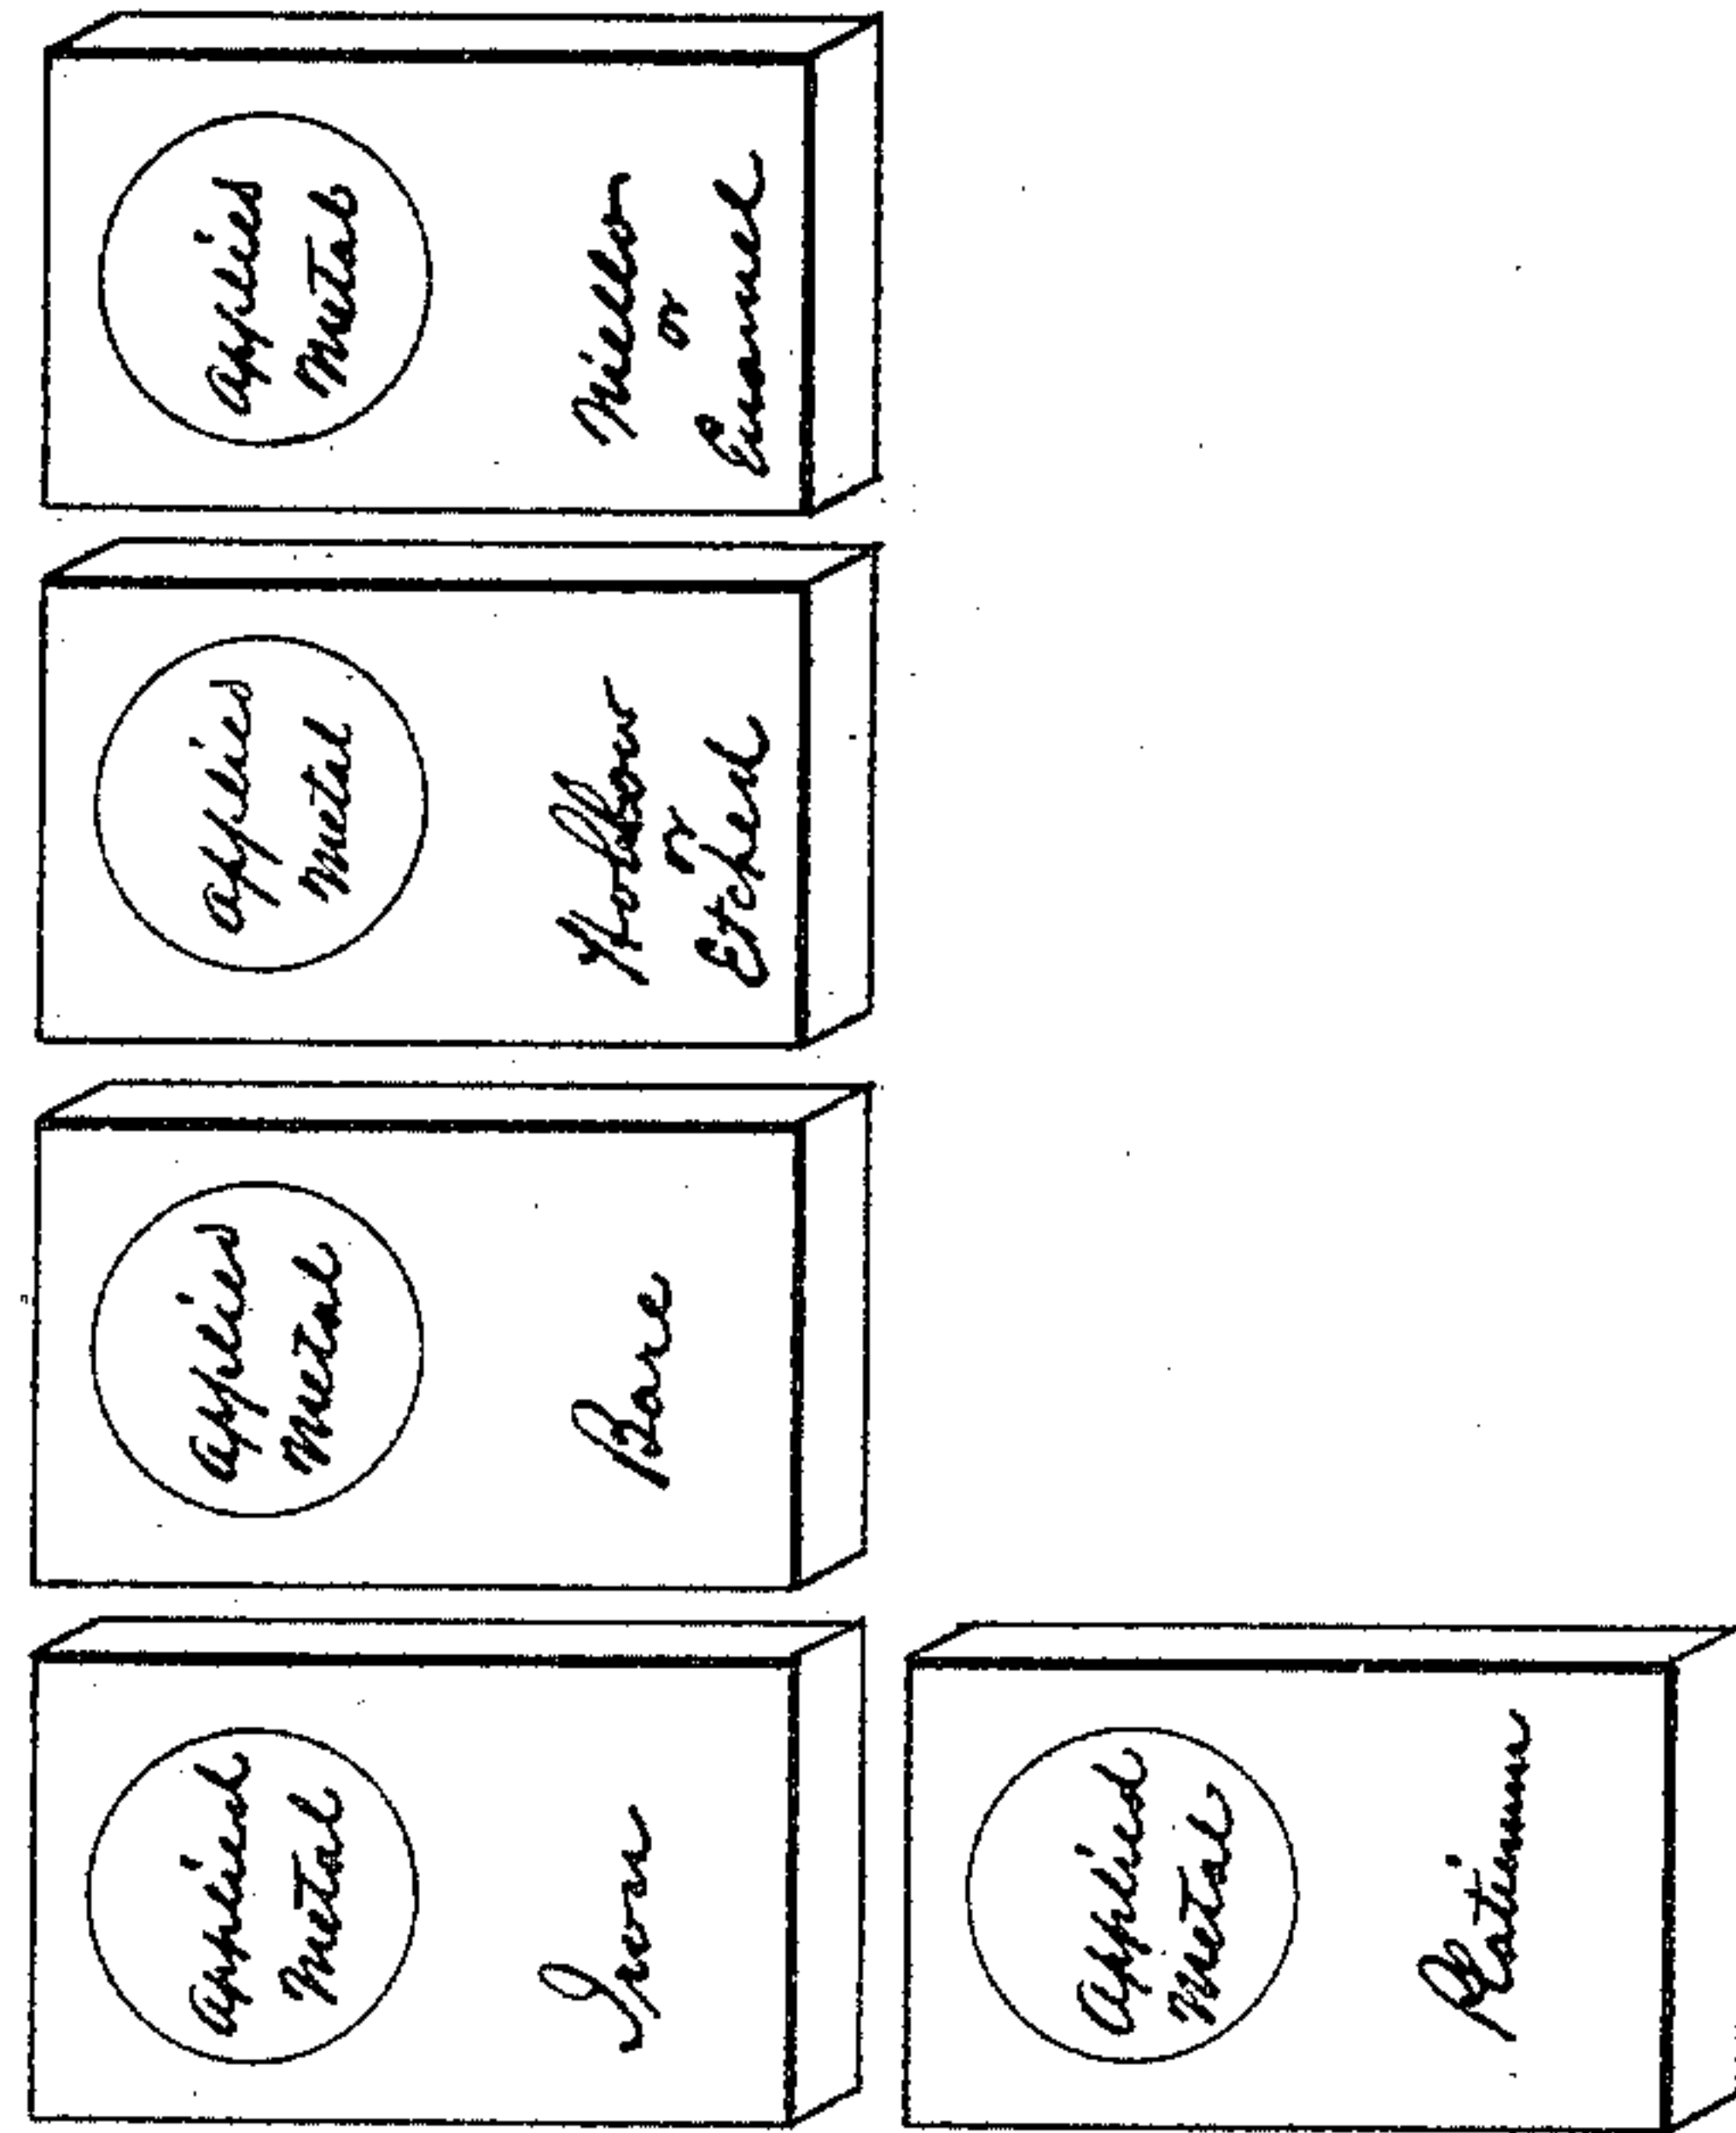 Applied
Metal
Iron
Applied
Metal
Bare
Applied
Metal
Hollow
or
Etched
Applied
Metal
Niello
or
Enamel
Applied
Metal
Platinum